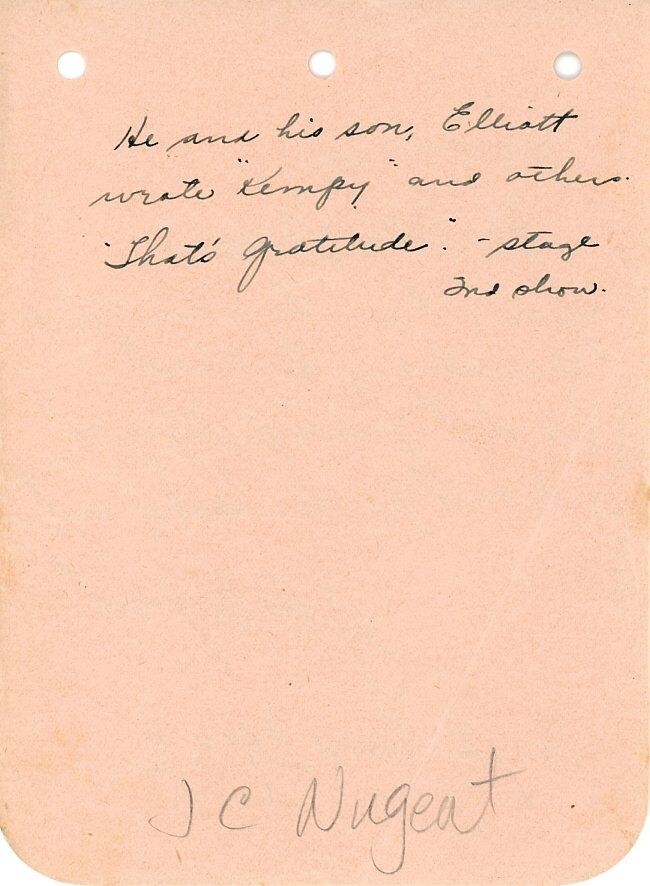 He and his son, Elliott
wrote "Kempy" and others.
"That's Gratitude". - stage
2nd show.
J C Nugent